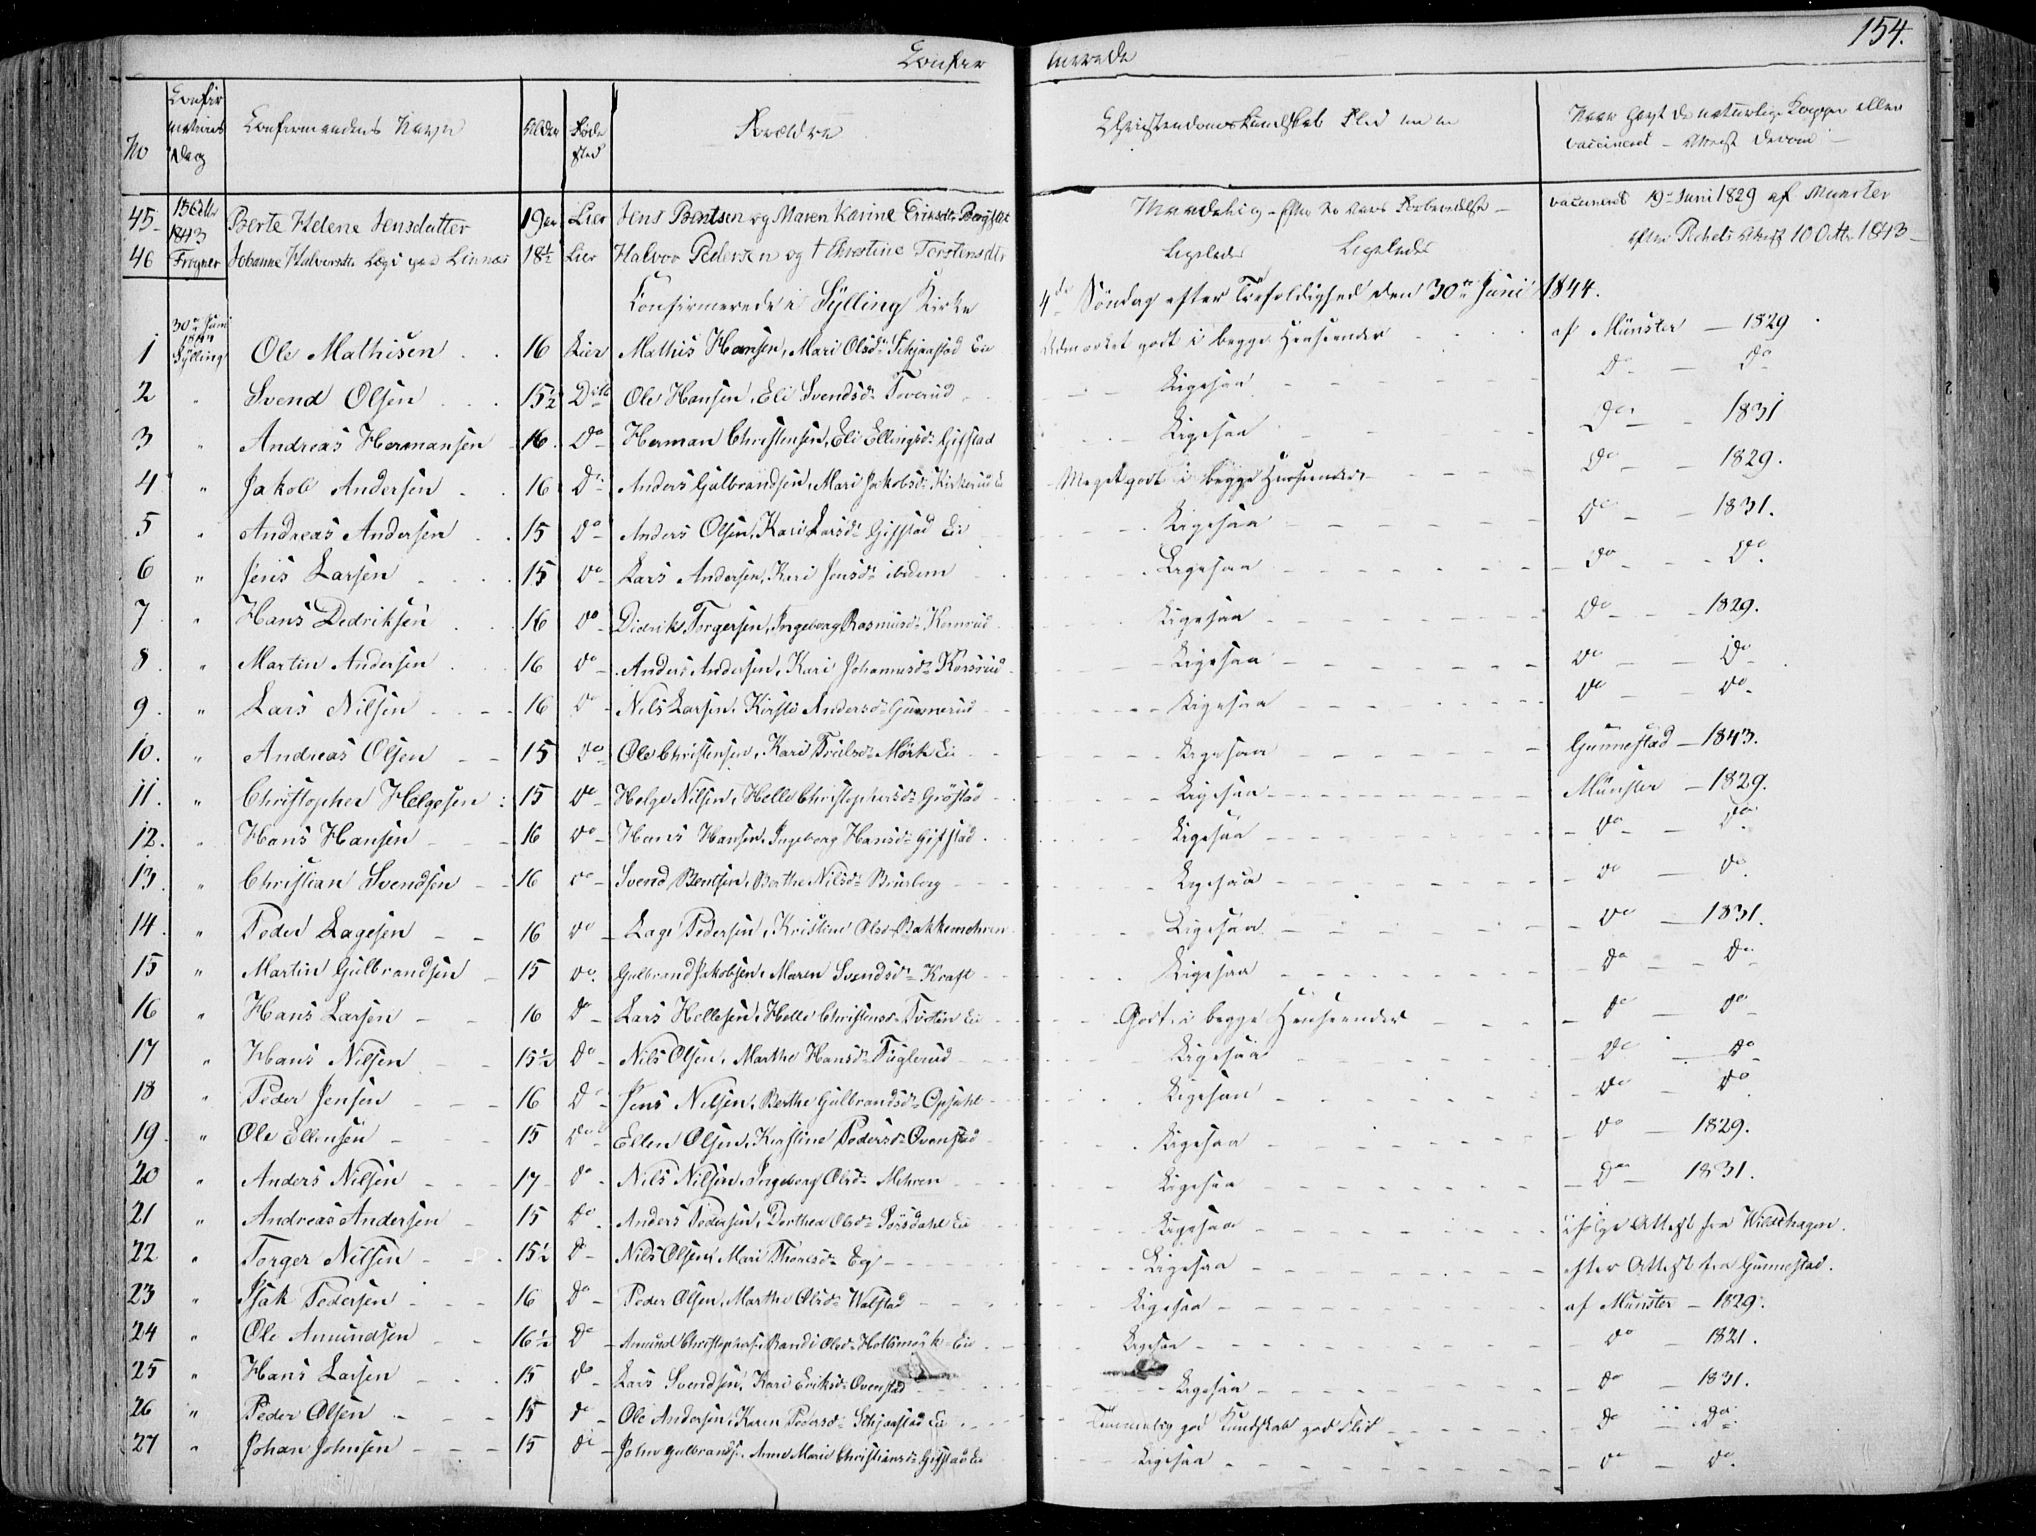 154.
Confir merede
No Confirmations Dag Confirmandens Navn Alder Føde sted Forældre Christendoms Kundskab Flid m m Naar havt de naturlige Kopper eller vaccineret - Attest derom
45 15 Octbr 1843 Berte Helene Jensdatter 19 Lier Jens Bentsen og Maren Karine Eriksdr vaccineret 19 Juni 1829 af Munster
46 Frogner Johanne Halvorsdtr Lægd paa Linnæs 18½ Lier Halvor Pedersen og † Christine Torstensdtr Ligeledes Ligeledes Attest 10 Octbr 1843
Confirmerede i Sylling Kirke 4de Søndag efter Trefoldighed den 30te Juni 1844.
1 30te Juni 1844 Sylling Ole Mathisen 16 Lier Mathis Hansen, Mari Olsdr Schjaastad Eie Udmærket godt i begge Henseender af Münster - 1829
2 " Svend Olsen 15½ Ditto Ole Hansen, Eli Svendsdr Toverud Ligesaa do - do
3 " Andreas Hermansen 16 Do Herman Christensen, Eli Ellingsdr Gifstad Ligesaa Do - 1831
4 " Jakob Andersen 16 Do Anders Gulbrandsen, Mari Jakobsdr Kirkerud Ei Meget godt i begge Henseender Do - 1829.
5 " Andreas Andersen 15 do Anders Olsen, Kari Larsdr Gifstad Eie Ligesaa Do - 1831.
6 " Jens Larsen 15 do Lars Andersen, Kari Jensdr ibidem Ligesaa do - do
7 " Hans Dedriksen 16 do Didrik Torgersen, Ingeborg Rasmusdr Ligesaa do - 1829.
8 " Martin Andersen 16 do Anders Andersen, Kari Johannesdr Korsrud Ligesaa do - do
9. " Lars Nilsen 16 do Nils Larsen, Kirsti Andersdr Gunnerud Ligesaa do - do
10. " Andreas Olsen 15 do Ole Christensen, Kari Trulsdr Mörk Ei Ligesaa Gunnestad - 1843.
11. " Christopher Helgesen 15 do Helge Nilsen, Helle Christophersdr Gröstad Ligesaa Münster - 1829.
12. " Hans Hansen 16 do Hans Hansen, Ingeborg Hansdr Gifstad Ligesaa do - do
13. " Christian Svendsen 16 do Svend Bentsen, Berthe Nilsdr Ligesaa do - do
14. " Peder Lagesen 16 do Lage Pedersen, Kristine Olsdr Bakkemehren Ligesaa do - 1831.
15 " Martin Gulbrandsen 15 do Gulbrand Jakobsen, Maren Svendsdr Kraft Ligesaa do - do
16 " Hans Larsen 16 do Lars Hellesen, Helle Christensdr Tveten Ei Godt i begge Henseender do - do
17 " Hans Nilsen 15½ do Nils Olsen, Marthe Hansdr Fuglerud Ligesaa do - do
18 " Peder Jensen 16 D Jens Nilsen, Berthe Gulbrandsdr Opsahl Ligesaa do - do
19. " Ole Ellensen 15 do Ellen Olsen, Kirstine Pedersdr Ovenstad Ligesaa do - 1829.
20 " Anders Nilsen 17 do Nils Nilsen, Ingeborg Olsdr Mehren Ligesaa do - 1831.
21 " Andreas Andersen 15 do Anders Pedersen, Dorthea Olsdr Sörsdahl Ei Ligesaa ifølge Attest fra Wildhagen.
22 " Torger Nilsen 15½ do Nils Olsen, Mari Thoresdr Eg Ligesaa efter Attest fra Gunnestad.
23 " Isak Pedersen 16 do Peder Olsen, Marthe Olsdr Walstad Ligesaa af Munster - 1829.
24 " Ole Amundsen 16½ do Amund Christophers, Randi Olsdr Holtsmark Ei Ligesaa do - 1821.
25 " Hans Larsen 15 do Lars Svendsen, Kari Eriksdr Ovenstad Ligesaa do - 1831.
26 " Peder Olsen 15 do Ole Andersen, Karen Pedersdr Schjaastad Ei Temmelig god Kundskab god Flid do - do
27 " Johan Johnsen 15 do John Gulbrands, Anne Marie Christiansdr Gifstad Ei Ligesaa do - do